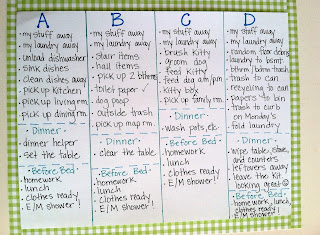 A
• my stuff away
• my laundry away
• unload dishwasher
• sink dishes
• clean dishes away
• pick up kitchen
• pick up living rm
• pick up dining rm
• Dinner •
• dinner helper
• set the table
• Before Bed •
• homework
• lunch
• clothes ready
• E/M shower!
B
• my stuff away
• my laundry away
• Stair items
• hall items
• pick up 2 bthrm
• toilet paper ✓
• dog poop
• outside trash
• pick up map rm
• Dinner •
• clear the table
• Before Bed •
• homework
• lunch
• clothes ready
• E/M shower!
C
• my stuff away
• my laundry away
• brush kitty
• groom dog
• feed Kitty
• feed dog am/pm
• kitty box
• pick up family rm
• Dinner •
• wash pots, etc.
• Before Bed •
• homework
• lunch
• clothes ready
• E/M shower!
D
• my stuff away
• my laundry away
• random floor debris
• laundry to bsmt.
• bthrm/bdrm trash
• trash to can
• recycling to can
• papers to bin
• trash to curb
on Monday's
• fold laundry
• Dinner •
• wipe table, stove,
and counters
• leftovers away
• leave the kit.
looking great ☺
• Before Bed •
homework, lunch
clothes ready
E/M shower